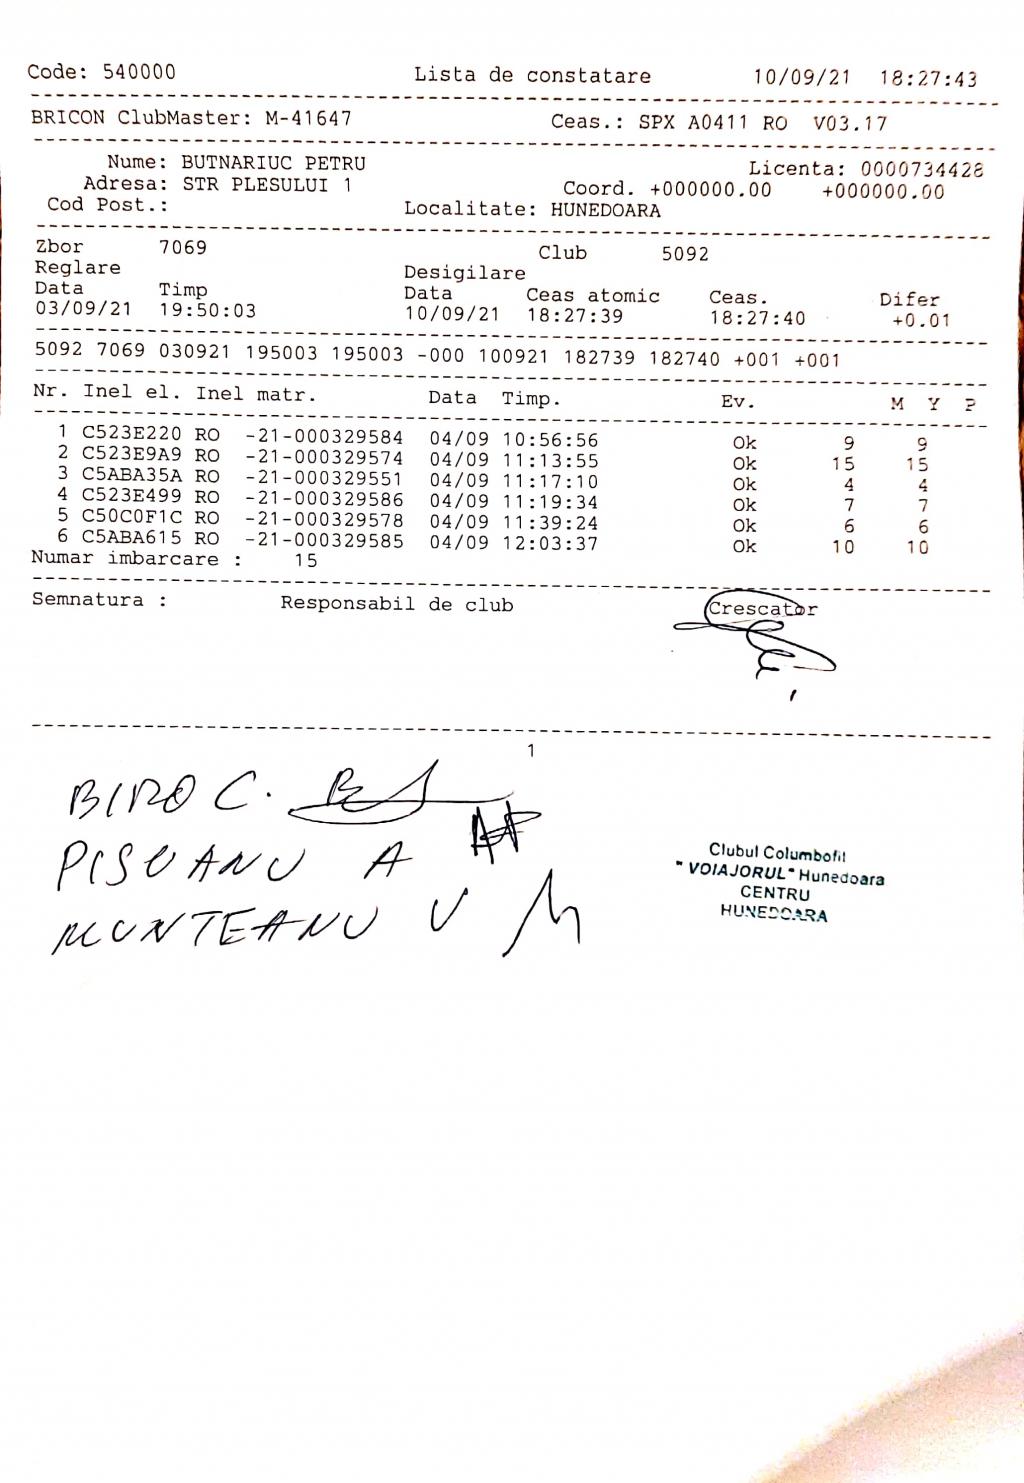 Code: 540000 Lista de constatare 10/09/21 18:27:43
BRICON ClubMaster: M-41647 Ceas.: SPX A0411 RO V03.17
Nume: BUTNARIUC PETRU Licenta: 0000734428
Adresa: STR PLESULUI 1 Coord. +000000.00 +000000.00
Cod Post.: Localitate: HUNEDOARA
Zbor 7069 Club 5092
Reglare Desigilare
Data Timp Data Ceas atomic Ceas. Difer
03/09/21 19:50:03 10/09/21 18:27:39 18:27:40 +0.01
5092 7069 030921 195003 195003 -000 100921 182739 182740 +001 +001
Nr. Inel el. Inel matr. Data Timp. Ev. M Y P
1 C523E220 RO -21-000329584 04/09 10:56:56 Ok 9 9
2 C523E9A9 RO -21-000329574 04/09 11:13:55 Ok 15 15
3 C5ABA35A RO -21-000329551 04/09 11:17:10 Ok 4 4
4 C523E499 RO -21-000329586 04/09 11:19:34 Ok 7 7
5 C50C0F1C RO -21-000329578 04/09 11:39:24 Ok 6 6
6 C5ABA615 RO -21-000329585 04/09 12:03:37 Ok 10 10
Numar imbarcare : 15
Semnatura : Responsabil de club Crescator
1
BIRO C.
PISUANU A
MUNTEANU V
Clubul Columbofil
"VOIAJORUL" Hunedoara
CENTRU
HUNEDOARA